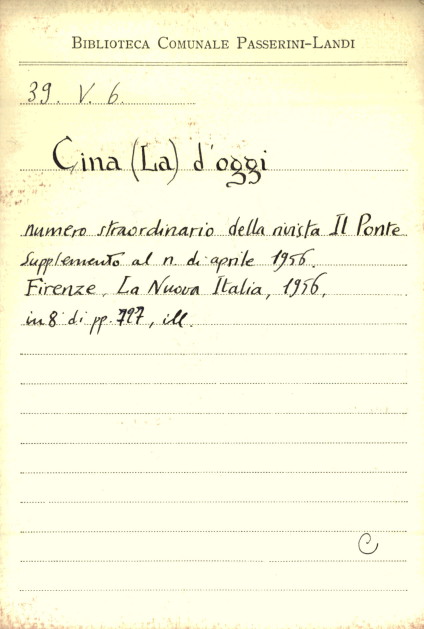 BIBLIOTECA COMUNALE PASSERINI-LANDI
39. V. 6.
Cina (La) d'oggi
numero straordinario della rivista Il Ponte
Supplemento al n. di aprile 1956.
Firenze, La Nuova Italia, 1956,
in 8° di pp. 727, ill.
C